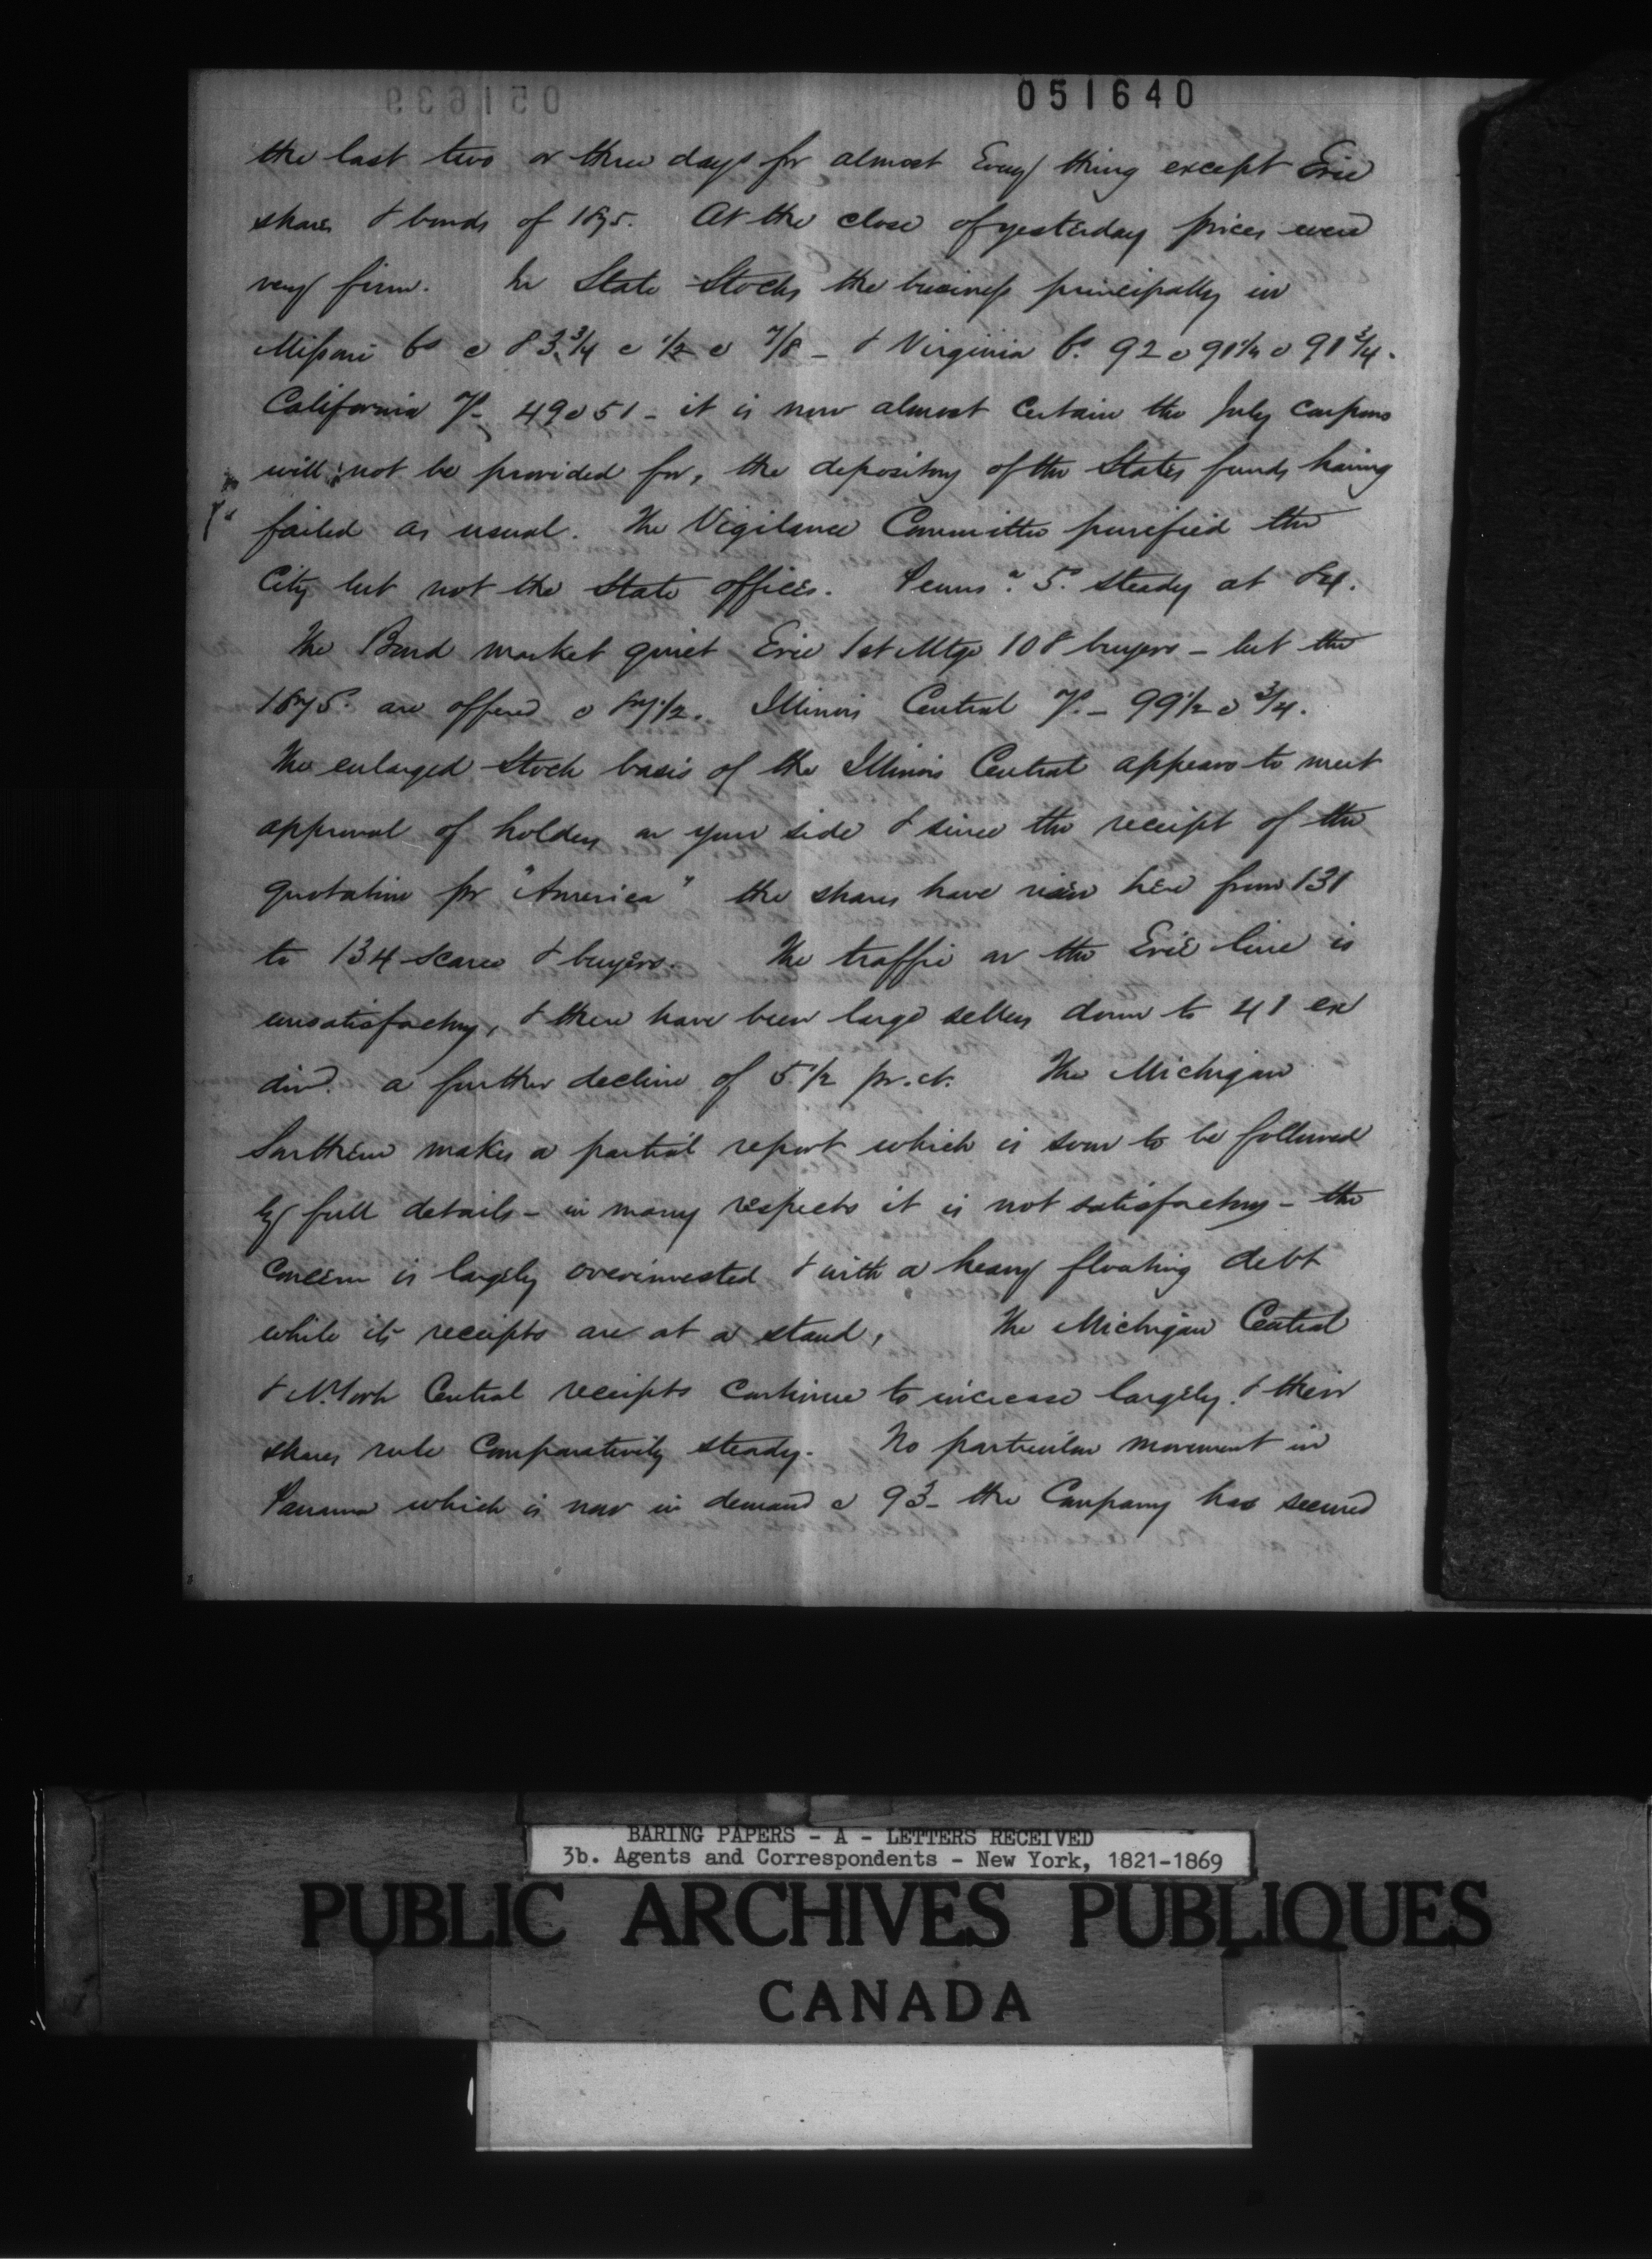 051639
051640
the last two or three days for almost Every thing except Erie
shares & bonds of 1875. At the close of yesterday prices were
very firm. In State Stocks the business principally in
Missouri 6s @ 83 3/4 @ 1/2 @ 7/8 - & Virginia 6s. 92 @ 91 1/4 @ 91 3/4.
California 7s - 49 @ 51 - it is now almost Certain the July coupons
will not be provided for, the depository of the States funds having
failed as usual. The Vigilance Committee purified the
City but not the State offices. Penns a. 5s. steady at 84.
The Bond market quiet Erie 1st Mtge 108 buyers - but the
1875s. are offered @ 87 1/2. Illinois Central 7s. - 99 1/2 @ 3/4.
The enlarged Stock basis of the Illinois Central appears to meet
approval of holders on your side & since the receipt of the
quotations pr "America" the shares have risen here from 131
to 134 scarce & buyers. The traffic on the Erie line is
unsatisfactory, & there have been large sellers down to 41 ex
divd. a further decline of 5 1/2 pr. ct. The Michigan
Southern makes a partial report which is soon to be followed
by full details - in many respects it is not satisfactory - the
Concern is largely overinvested & with a heavy floating debt
while its receipts are at a stand, The Michigan Central
& N. York Central receipts Continue to increase largely. & their
shares rule Comparatively steady. No particular movement in
Panama which is now in demand @ 93 - the Company has secured
BARING PAPERS - A - LETTERS RECEIVED
3b. Agents and Correspondents - New York, 1821-1869
PUBLIC ARCHIVES PUBLIQUES
CANADA